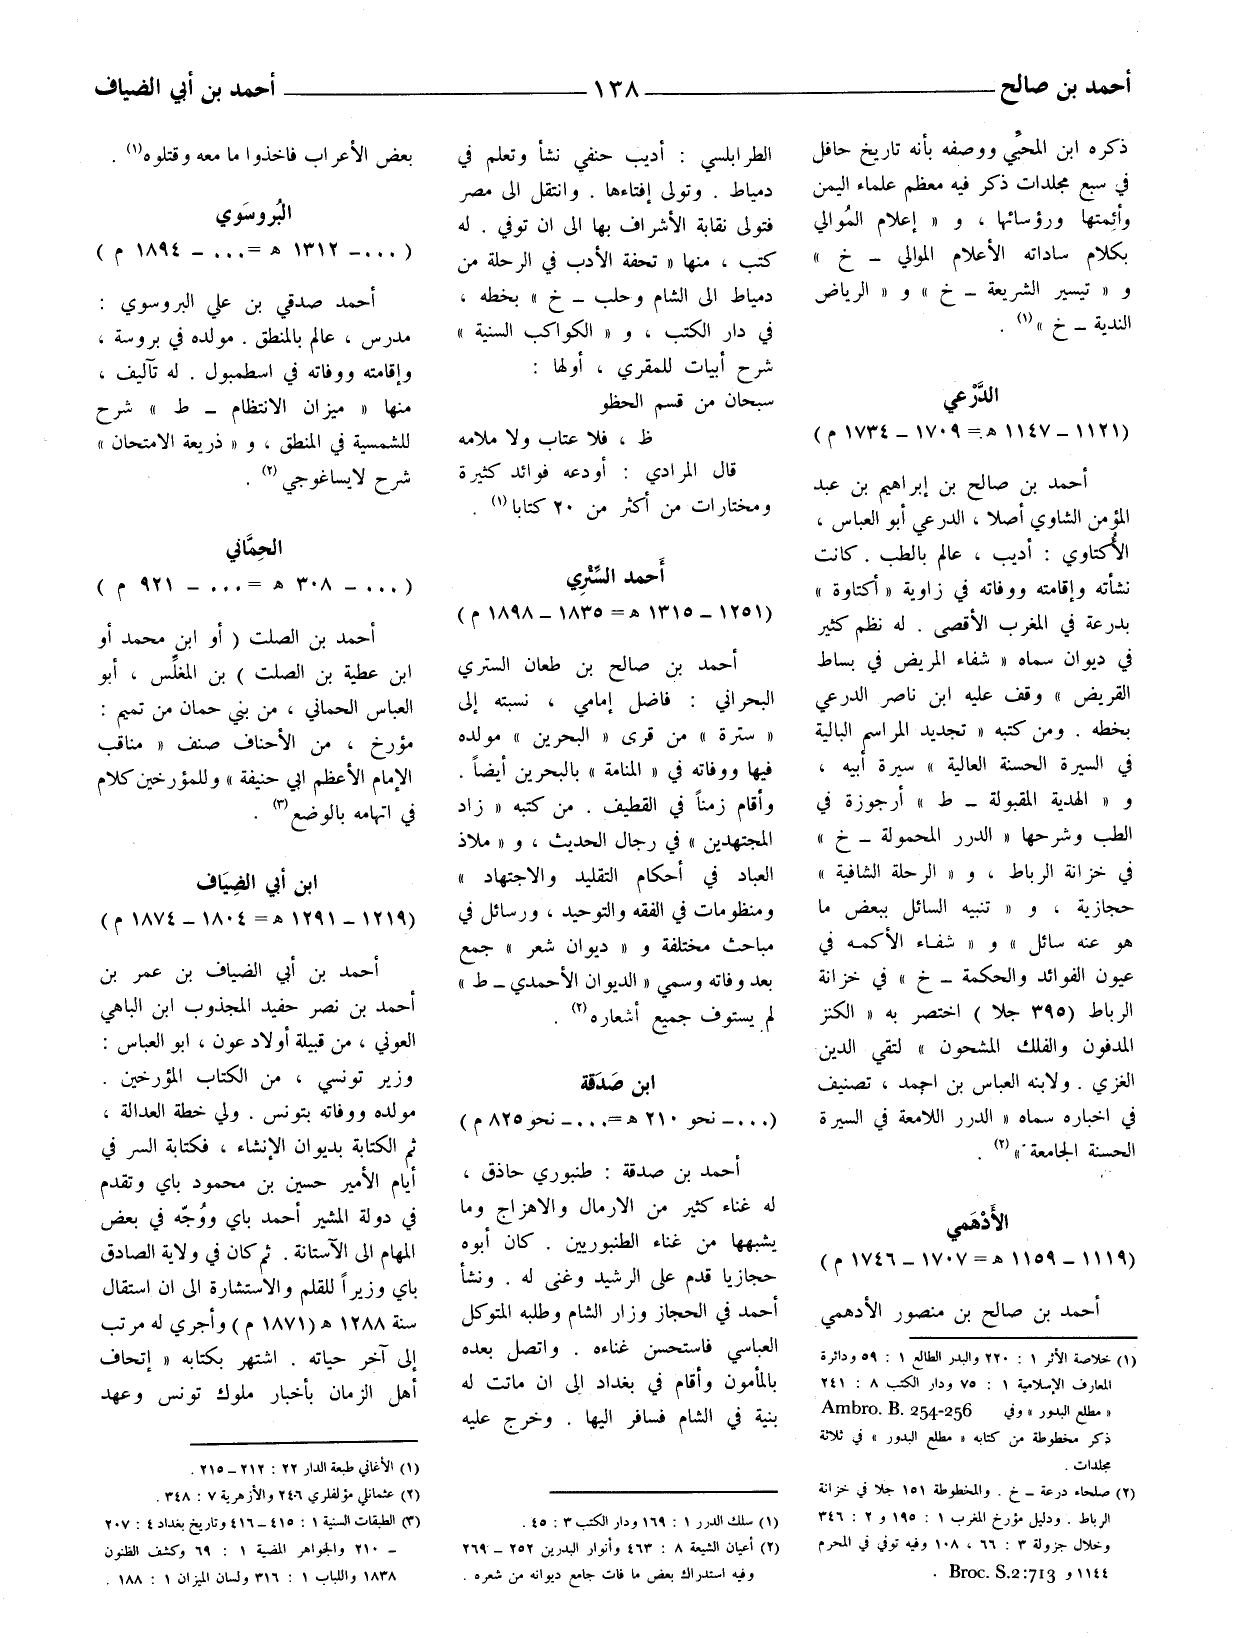 أحمد بن صالح ـــــ ١٣٨ ـــــ أحمد بن أبي الضياف
ذكره ابن المحبِّي ووصفه بأنه تاريخ حافل
في سبع مجلدات ذكر فيه معظم علماء اليمن
وأئمتها ورؤسائها ، و « إعلام المُوالي
بكلام ساداته الأعلام الموالي ـ خ »
و « تيسير الشريعة ـ خ » و « الرياض
الندية ـ خ »(١) .
الدَّرْعي
(١١٢١ ـ ١١٤٧ هـ = ١٧٠٩ ـ ١٧٣٤ م)
أحمد بن صالح بن إبراهيم بن عبد
المؤمن الشاوي أصلا ، الدرعي أبو العباس ،
الأُكتاوي : أديب ، عالم بالطب . كانت
نشأته وإقامته ووفاته في زاوية « أكتاوة »
بدرعة في المغرب الأقصى . له نظم كثير
في ديوان سماه « شفاء المريض في بساط
القريض » وقف عليه ابن ناصر الدرعي
بخطه . ومن كتبه « تجديد المراسم البالية
في السيرة الحسنة العالية » سيرة أبيه ،
و « الهدية المقبولة ـ ط » أرجوزة في
الطب وشرحها « الدرر المحمولة ـ خ »
في خزانة الرباط ، و « الرحلة الشافية »
حجازية ، و « تنبيه السائل ببعض ما
هو عنه سائل » و « شفاء الأكمه في
عيون الفوائد والحكمة ـ خ » في خزانة
الرباط (٣٩٥ جلا ) اختصر به « الكنز
المدفون والفلك المشحون » لتقي الدين
الغزي . ولابنه العباس بن احمد ، تصنيف
في اخباره سماه « الدرر اللامعة في السيرة
الحسنة الجامعة »(٢) .
الأَدْهَمي
(١١١٩ ـ ١١٥٩ هـ = ١٧٠٧ ـ ١٧٤٦ م)
أحمد بن صالح بن منصور الأدهمي
(١) خلاصة الأثر ١ : ٢٢٠ والبدر الطالع ١ : ٥٩ ودائرة
المعارف الإسلامية ١ : ٧٥ ودار الكتب ٨ : ٢٤١
« مطلع البدور » وفي Ambro. B. 254-256
ذكر مخطوطة من كتابه « مطلع البدور » في ثلاثة
مجلدات .
(٢) صلحاء درعة ـ خ . والمخطوطة ١٥١ جلا في خزانة
الرباط . ودليل مؤرخ المغرب ١ : ١٩٥ و ٢ : ٣٤٦
وخلال جزولة ٣ : ٦٦ ، ١٠٨ وفيه توفي في المحرم
١١٤٤ و Broc. S.2:713 .
الطرابلسي : أديب حنفي نشأ وتعلم في
دمياط . وتولى إفتاءها . وانتقل الى مصر
فتولى نقابة الأشراف بها الى ان توفي . له
كتب ، منها « تحفة الأدب في الرحلة من
دمياط الى الشام وحلب ـ خ » بخطه ،
في دار الكتب ، و « الكواكب السنية »
شرح أبيات للمقري ، أولها :
سبحان من قسم الحظو
ظ ، فلا عتاب ولا ملامه
قال المرادي : أودعه فوائد كثيرة
ومختارات من أكثر من ٢٠ كتابا(١) .
أَحمد السِّتْرِي
(١٢٥١ ـ ١٣١٥ هـ = ١٨٣٥ ـ ١٨٩٨ م)
أحمد بن صالح بن طعان الستري
البحراني : فاضل إمامي ، نسبته إلى
« سترة » من قرى « البحرين » مولده
فيها ووفاته في « المنامة » بالبحرين أيضاً .
وأقام زمناً في القطيف . من كتبه « زاد
المجتهدين » في رجال الحديث ، و « ملاذ
العباد في أحكام التقليد والاجتهاد »
ومنظومات في الفقه والتوحيد ، ورسائل في
مباحث مختلفة و « ديوان شعر » جمع
بعد وفاته وسمي « الديوان الأحمدي ـ ط »
لم يستوف جميع أشعاره(٢) .
ابن صَدَقة
(... ـ نحو ٢١٠ هـ = ... ـ نحو ٨٢٥ م)
أحمد بن صدقة : طنبوري حاذق ،
له غناء كثير من الارمال والاهزاج وما
يشبهها من غناء الطنبوريين . كان أبوه
حجازيا قدم على الرشيد وغنى له . ونشأ
أحمد في الحجاز وزار الشام وطلبه المتوكل
العباسي فاستحسن غناءه . واتصل بعده
بالمأمون وأقام في بغداد الى ان ماتت له
بنية في الشام فسافر اليها . وخرج عليه
(١) سلك الدرر ١ : ١٦٩ ودار الكتب ٣ : ٤٥ .
(٢) أعيان الشيعة ٨ : ٤٦٣ وأنوار البدرين ٢٥٢ ـ ٢٦٩
وفيه استدراك بعض ما فات جامع ديوانه من شعره .
بعض الأعراب فاخذوا ما معه وقتلوه(١) .
البُروسَوي
( ... ـ ١٣١٢ هـ = ... ـ ١٨٩٤ م )
أحمد صدقي بن علي البروسوي :
مدرس ، عالم بالمنطق . مولده في بروسة ،
وإقامته ووفاته في اسطمبول . له تآليف ،
منها « ميزان الانتظام ـ ط » شرح
للشمسية في المنطق ، و « ذريعة الامتحان »
شرح لايساغوجي (٢) .
الحِمَّاني
( ... ـ ٣٠٨ هـ = ... ـ ٩٢١ م )
أحمد بن الصلت ( أو ابن محمد أو
ابن عطية بن الصلت ) بن المغلِّس ، أبو
العباس الحماني ، من بني حمان من تميم :
مؤرخ ، من الأحناف صنف « مناقب
الإمام الأعظم ابي حنيفة » وللمؤرخين كلام
في اتهامه بالوضع(٣) .
ابن أبي الضِيَاف
(١٢١٩ ـ ١٢٩١ هـ = ١٨٠٤ ـ ١٨٧٤ م)
أحمد بن أبي الضياف بن عمر بن
أحمد بن نصر حفيد المجذوب ابن الباهي
العوني ، من قبيلة أولاد عون ، ابو العباس :
وزير تونسي ، من الكتاب المؤرخين .
مولده ووفاته بتونس . ولي خطة العدالة ،
ثم الكتابة بديوان الإنشاء ، فكتابة السر في
أيام الأمير حسين بن محمود باي وتقدم
في دولة المشير أحمد باي ووُجّه في بعض
المهام الى الآستانة . ثم كان في ولاية الصادق
باي وزيراً للقلم والاستشارة الى ان استقال
سنة ١٢٨٨ هـ (١٨٧١ م) وأجري له مرتب
إلى آخر حياته . اشتهر بكتابه « إتحاف
أهل الزمان بأخبار ملوك تونس وعهد
(١) الأغاني طبعة الدار ٢٢ : ٢١٢ ـ ٢١٥ .
(٢) عثمانلي مؤلفلري ٢٤٦ والأزهرية ٧ : ٣٤٨ .
(٣) الطبقات السنية ١ : ٤١٥ ـ ٤١٦ وتاريخ بغداد ٤ : ٢٠٧
ـ ٢١٠ والجواهر المضية ١ : ٦٩ وكشف الظنون
١٨٣٨ واللباب ١ : ٣١٦ ولسان الميزان ١ : ١٨٨ .